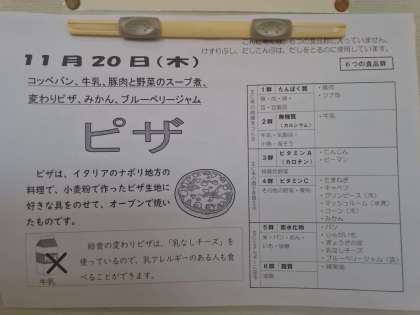 これらは、6つの食品群に入っていません。
けずりぶし、だしこんぶは、だしをとるのに使用しています。
11月20日(木)
6つの食品群
コッペパン、牛乳、豚肉と野菜のスープ煮、
変わりピザ、みかん、ブルーベリージャム
ピザ
ピザは、イタリアのナポリ地方の
料理で、小麦粉で作ったピザ生地に
好きな具をのせて、オーブンで焼い
たものです。
給食の変わりピザは、「乳なしチーズ」を
使っているので、乳アレルギーのある人も食
べることができます。
牛乳
1群 たんぱく質
魚・肉・卵・
豆・豆製品
・豚肉
・ツナ缶
2群 無機質
(カルシウム)
牛乳・乳製品・
小魚・海そう
・牛乳
3群 ビタミンA
(カロテン)
緑黄色野菜
・にんじん
・ピーマン
4群 ビタミンC
その他の野菜・果物
・たまねぎ
・キャベツ
・グリンピース(冷)
・マッシュルーム(水煮)
・コーン(冷)
・みかん
5群 炭水化物
米・パン・めん・
いも・砂糖
・パン
・じゃがいも
・ぎょうざの皮
・乳なしチーズ
・ブルーベリージャム(袋)
6群 脂質
油脂
・綿実油